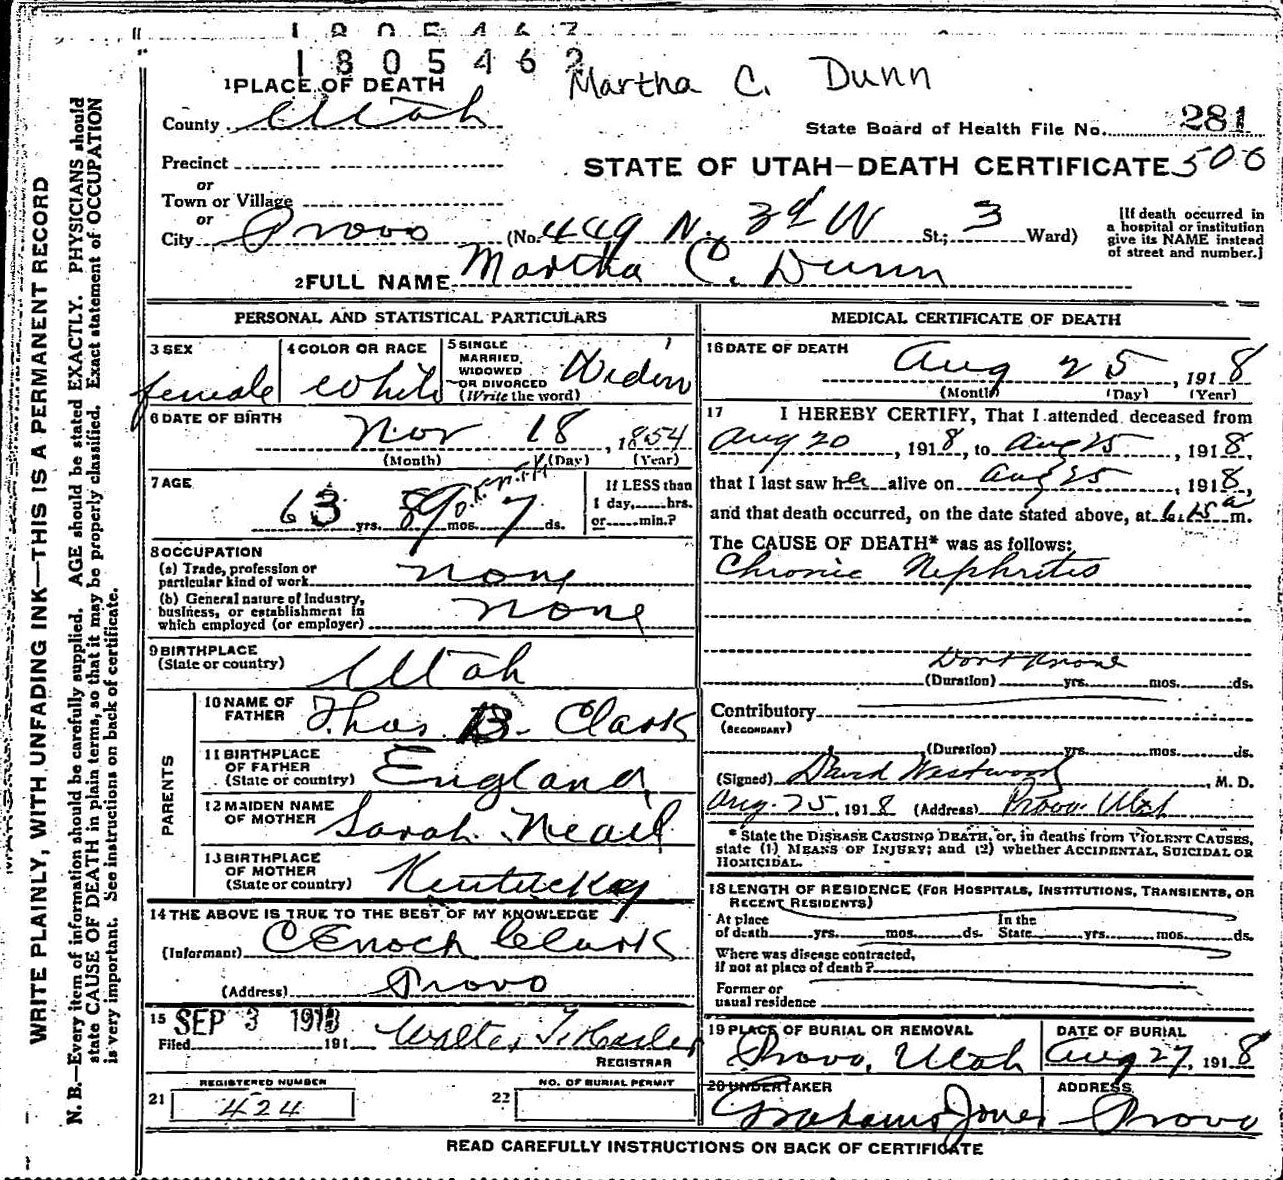 1805462
1805462
Martha C. Dunn
1 PLACE OF DEATH
County Utah
State Board of Health File No. 281
Precinct
STATE OF UTAH—DEATH CERTIFICATE 506
or
Town or Village
or
City Provo (No. 449 N. 3d W St.; 3 Ward)
[If death occurred in
a hospital or institution
give its NAME instead
of street and number.]
2 FULL NAME Martha C. Dunn
PERSONAL AND STATISTICAL PARTICULARS
3 SEX
female
4 COLOR OR RACE
White
5 SINGLE
MARRIED,
WIDOWED
OR DIVORCED
(Write the word)
Widow
6 DATE OF BIRTH
Nov 18, 1854
(Month) (Day) (Year)
7 AGE
63 yrs. mos. 7 ds.
If LESS than
1 day, hrs.
or min.?
8 OCCUPATION
(a) Trade, profession or
particular kind of work none
(b) General nature of industry,
business, or establishment in
which employed (or employer) none
9 BIRTHPLACE
(State or country) Utah
PARENTS
10 NAME OF
FATHER Thos B. Clark
11 BIRTHPLACE
OF FATHER
(State or country) England
12 MAIDEN NAME
OF MOTHER Sarah
13 BIRTHPLACE
OF MOTHER
(State or country) Kentuckey
14 THE ABOVE IS TRUE TO THE BEST OF MY KNOWLEDGE
(Informant) C Enoch Clark
(Address) Provo
15 SEP 3 1918
Filed 191 Walter T.
REGISTRAR
21 REGISTERED NUMBER
424
22 NO. OF BURIAL PERMIT
MEDICAL CERTIFICATE OF DEATH
16 DATE OF DEATH
Aug 25, 1918
(Month) (Day) (Year)
17 I HEREBY CERTIFY, That I attended deceased from
Aug 20, 1918, to Aug 25, 1918,
that I last saw her alive on Aug 25, 1918,
and that death occurred, on the date stated above, at 6.15 a m.
The CAUSE OF DEATH* was as follows:
Chronic Nephritis
Dont know
(Duration) yrs. mos. ds.
Contributory
(SECONDARY)
(Duration) yrs. mos. ds.
(Signed) David Westwood, M. D.
Aug. 25, 1918 (Address) Provo. Utah
* State the DISEASE CAUSING DEATH, or, in deaths from VIOLENT CAUSES,
state (1) MEANS OF INJURY; and (2) whether ACCIDENTAL, SUICIDAL OR
HOMICIDAL.
18 LENGTH OF RESIDENCE (FOR HOSPITALS, INSTITUTIONS, TRANSIENTS, OR
RECENT RESIDENTS)
At place
of death yrs. mos. ds.
In the
State yrs. mos. ds.
Where was disease contracted,
if not at place of death?
Former or
usual residence
19 PLACE OF BURIAL OR REMOVAL
Provo, Utah
DATE OF BURIAL
Aug 27, 1918
20 UNDERTAKER
Jones
ADDRESS
Provo
READ CAREFULLY INSTRUCTIONS ON BACK OF CERTIFICATE
WRITE PLAINLY, WITH UNFADING INK—THIS IS A PERMANENT RECORD
N. B.—Every item of information should be carefully supplied. AGE should be stated EXACTLY. PHYSICIANS should
state CAUSE OF DEATH in plain terms, so that it may be properly classified. Exact statement of OCCUPATION
is very important. See instructions on back of certificate.